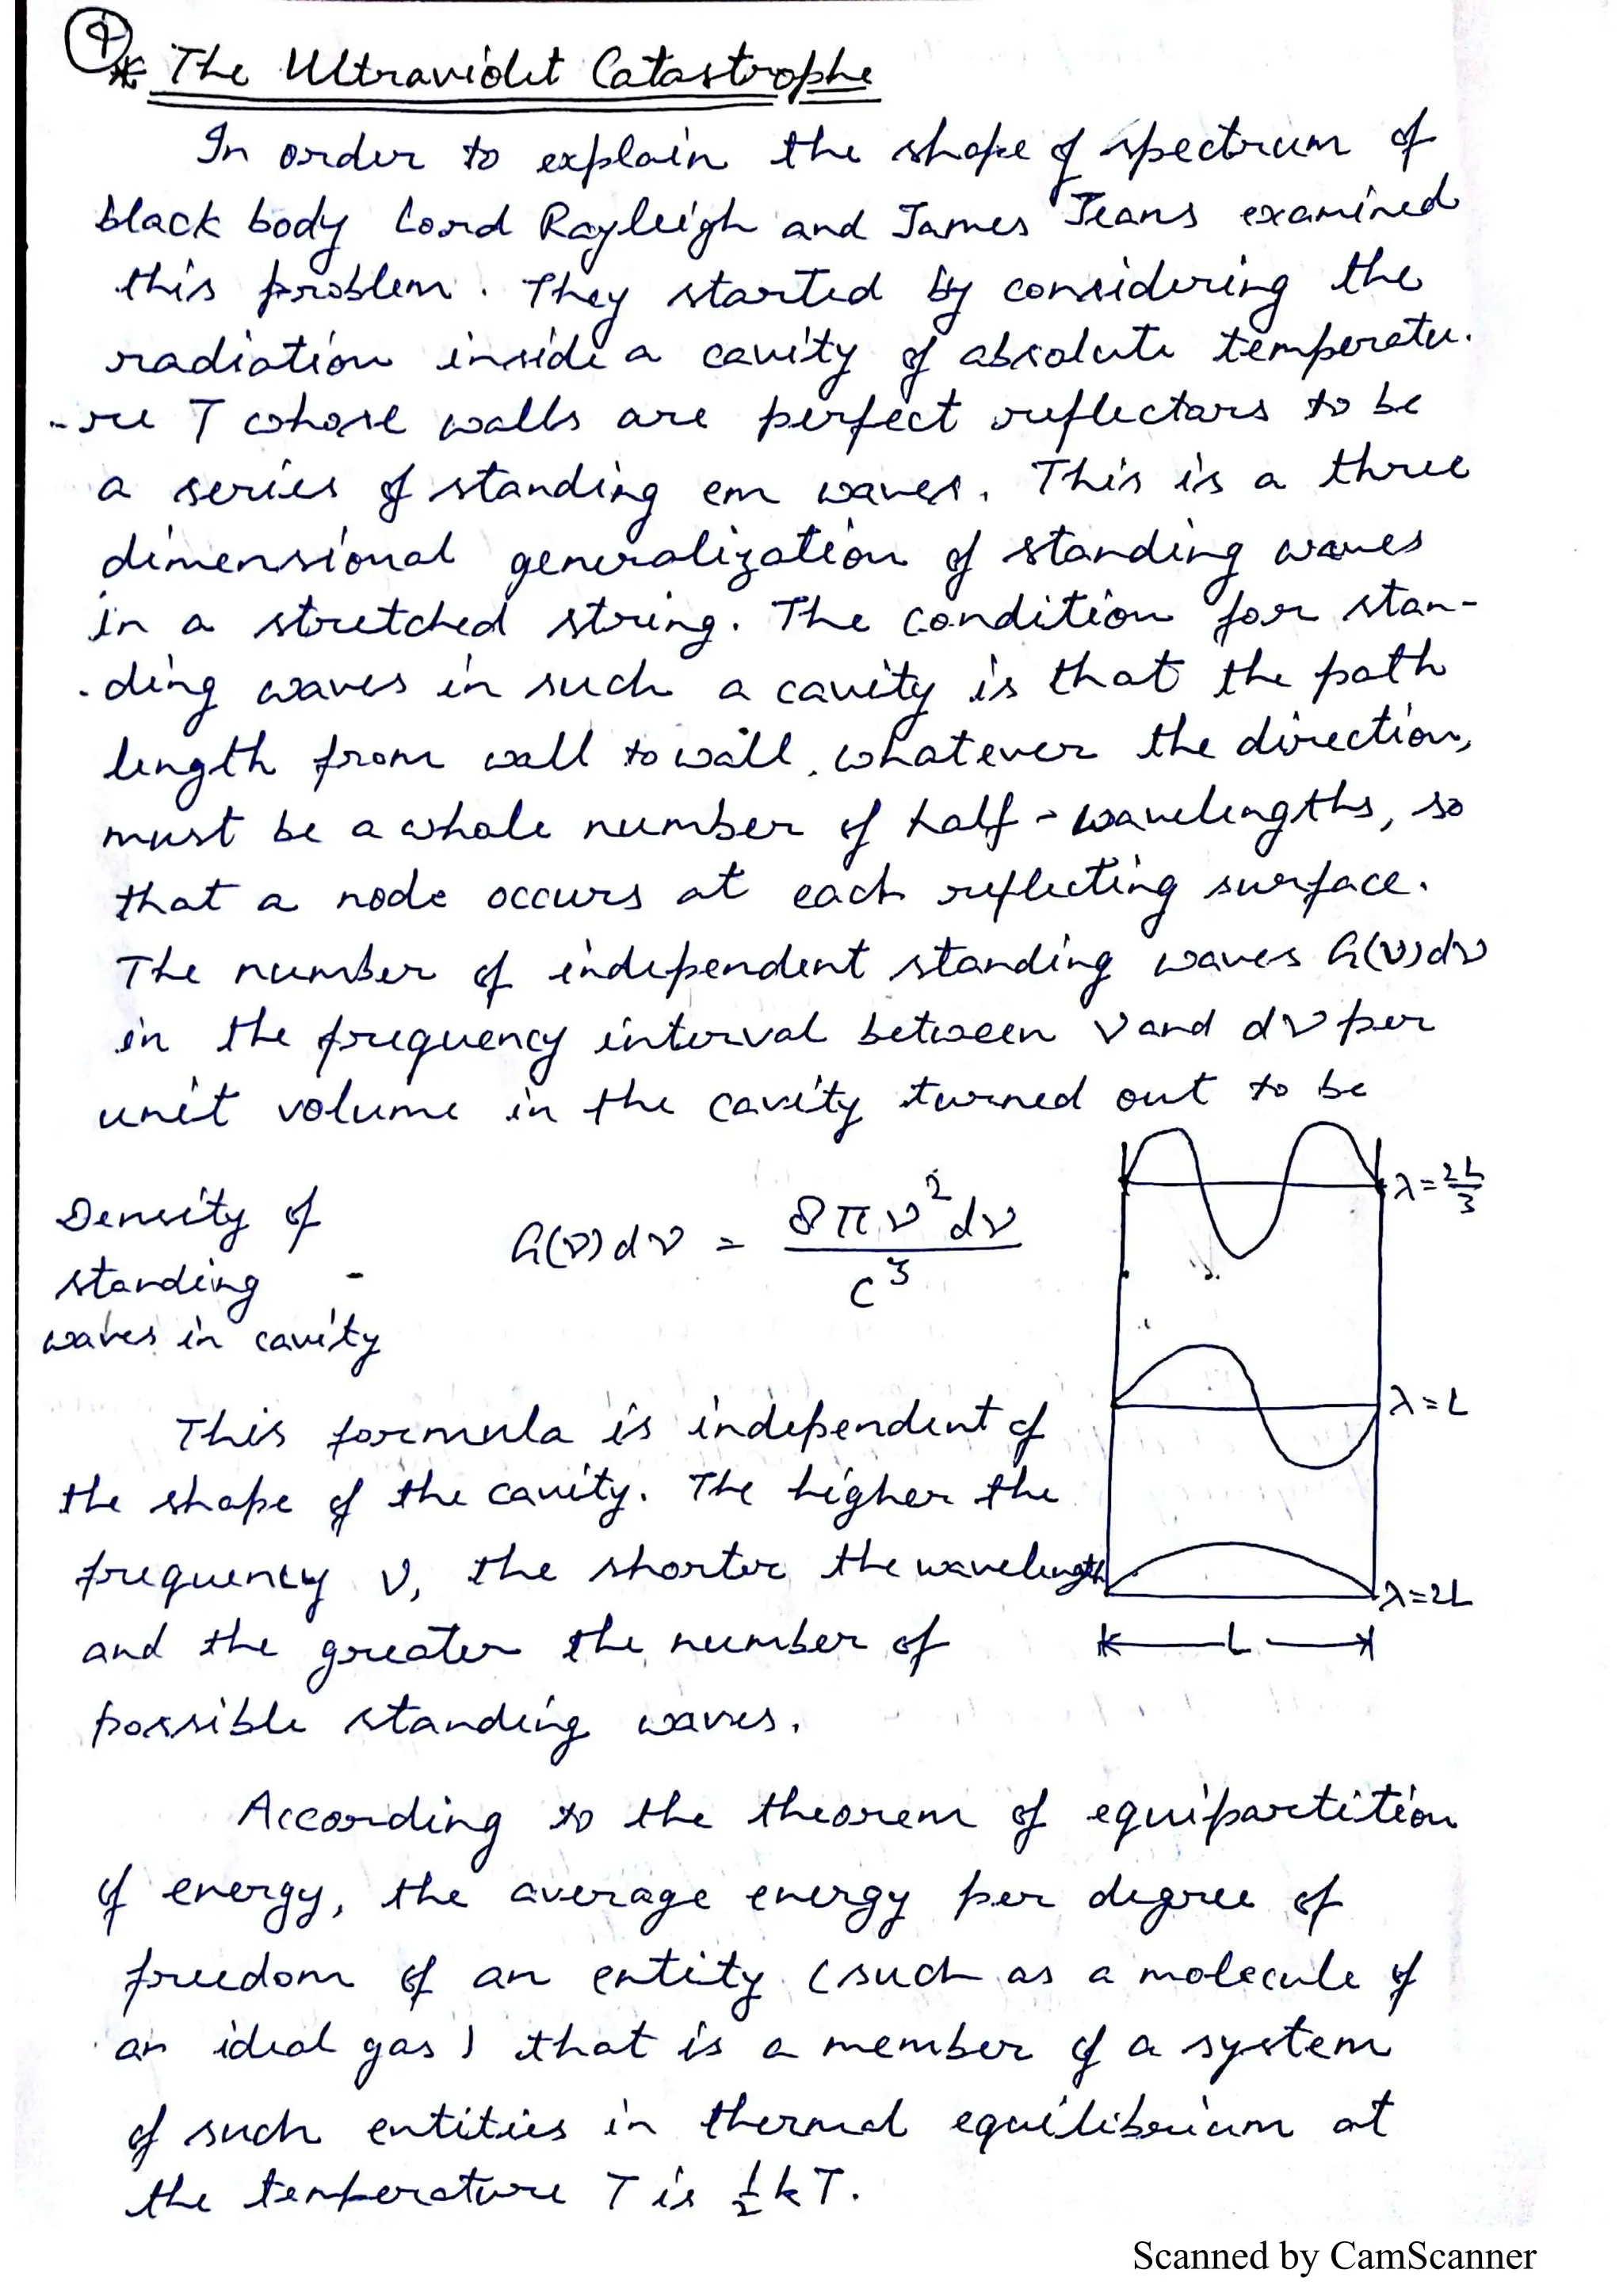 ④
* The Ultraviolet Catastrophe
In order to explain the shape of spectrum of
black body Lord Rayleigh and James Jeans examined
this problem. They started by considering the
radiation inside a cavity of absolute temperatu-
-re T whose walls are perfect reflectors to be
a series of standing em waves. This is a three
dimensional generalization of standing waves
in a stretched string. The condition for stan-
-ding waves in such a cavity is that the path
length from wall to wall, whatever the direction,
must be a whole number of half-wavelengths, so
that a node occurs at each reflecting surface.
The number of independent standing waves G(ν)dν
in the frequency interval between ν and dν per
unit volume in the cavity turned out to be
Density of
standing -
waves in cavity
G(ν)dν = 8πν²dν / c³
λ = 2L/3
λ = L
λ = 2L
L
This formula is independent of
the shape of the cavity. The higher the
frequency ν, the shorter the wavelength
and the greater the number of
possible standing waves.
According to the theorem of equipartition
of energy, the average energy per degree of
freedom of an entity (such as a molecule of
an ideal gas) that is a member of a system
of such entities in thermal equilibrium at
the temperature T is ½kT.
Scanned by CamScanner